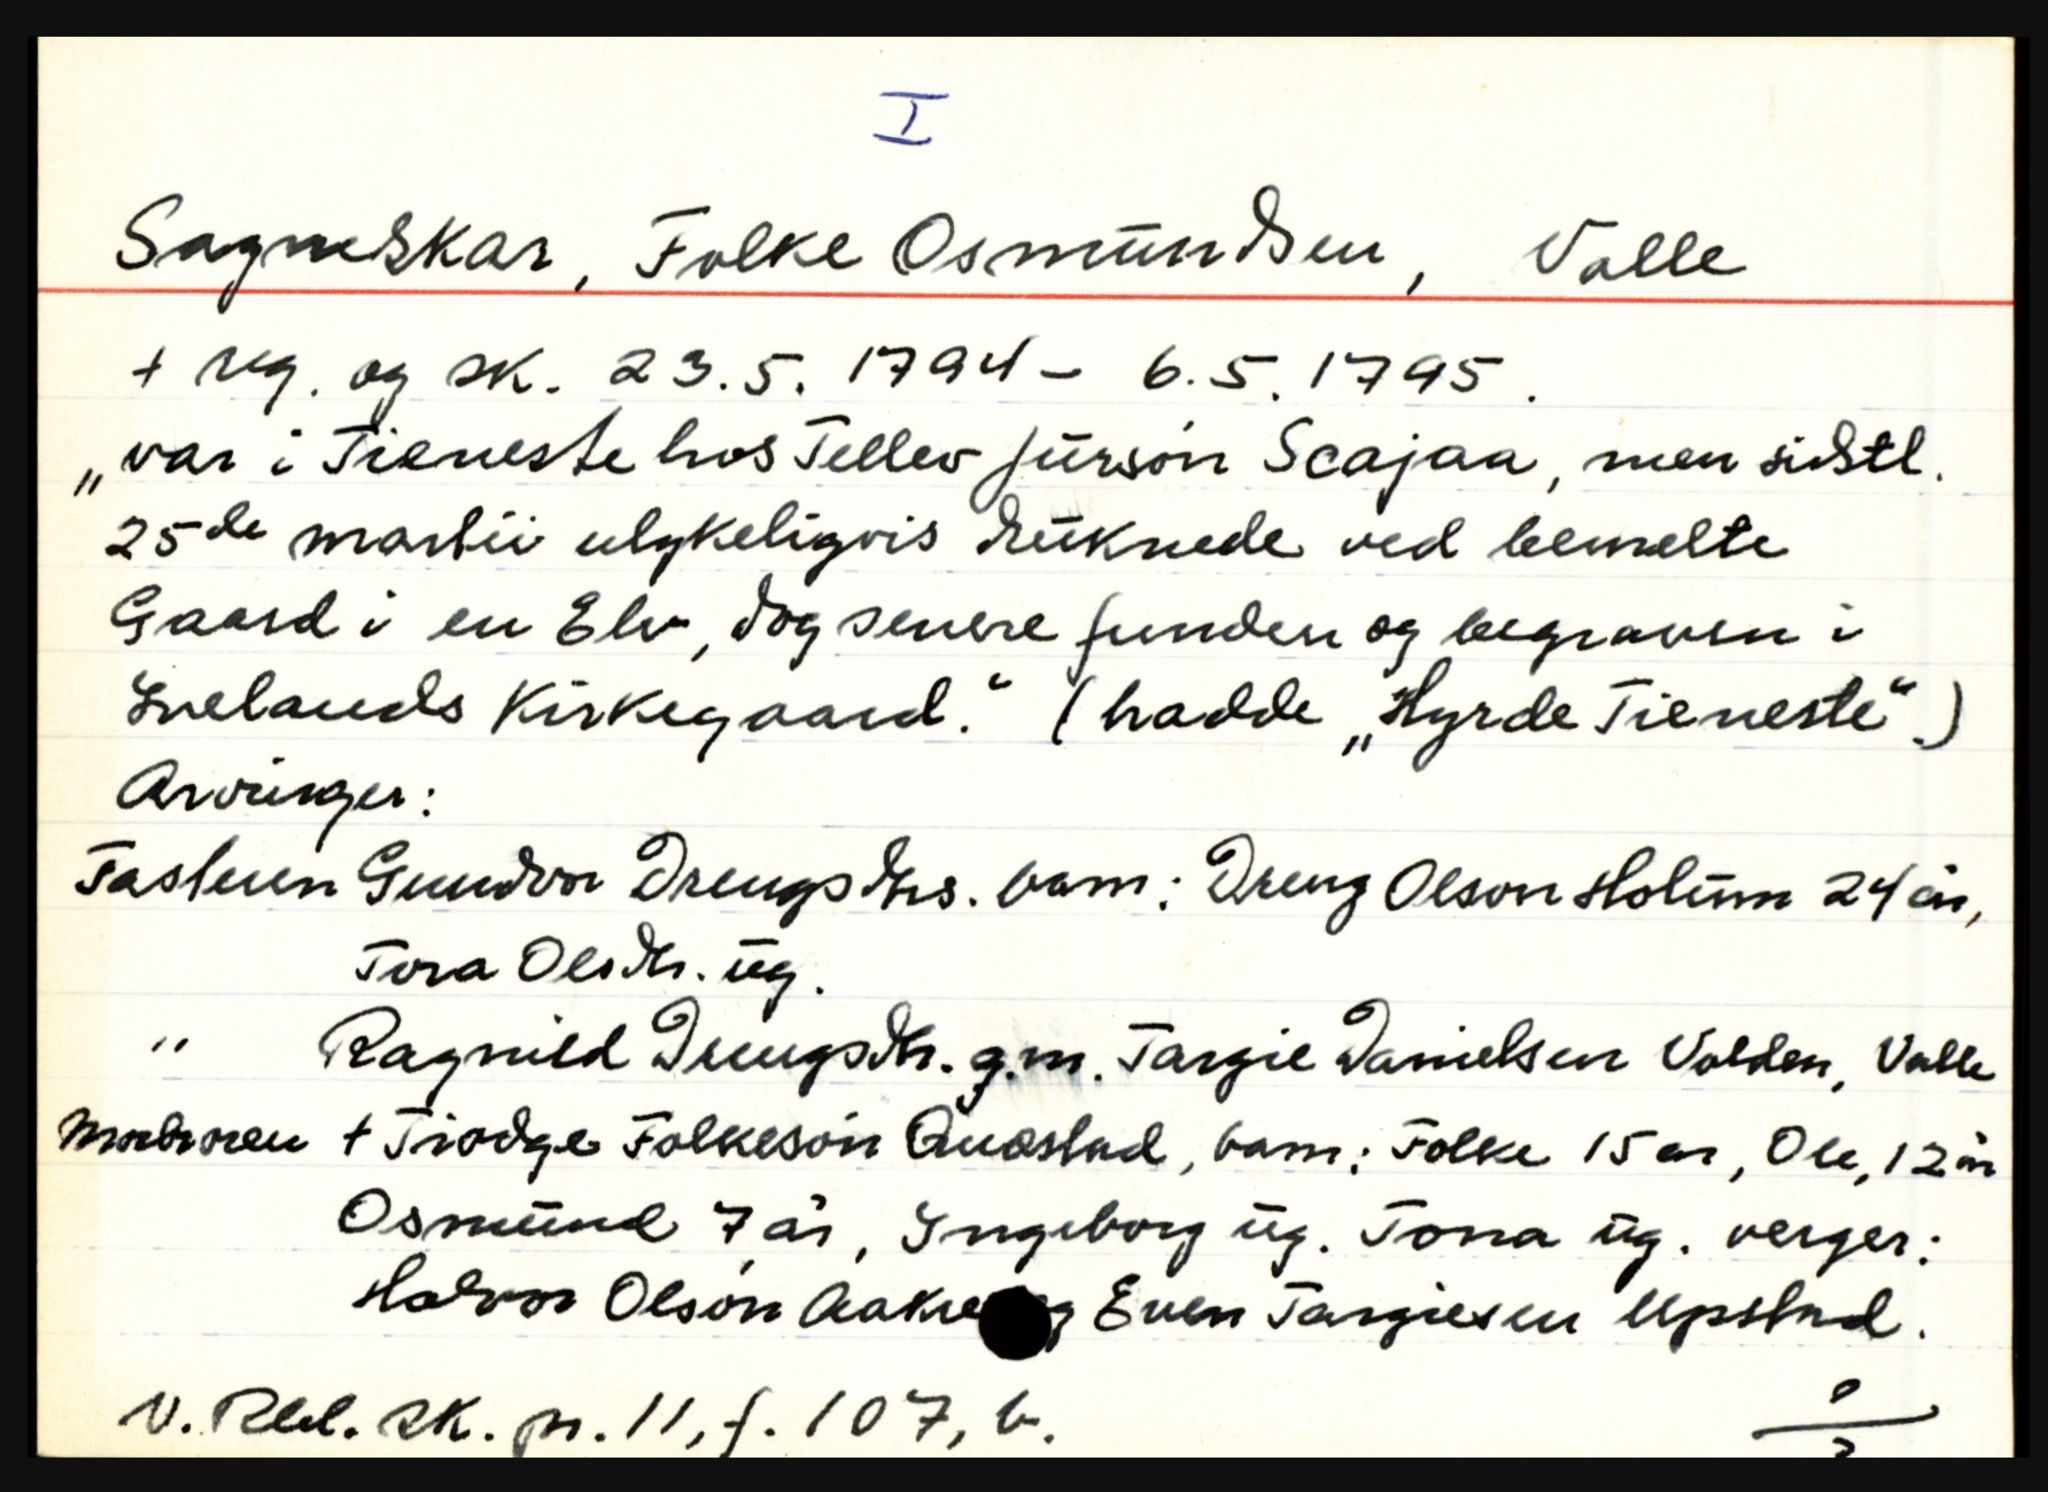 I
Sagneskar, Folke Osmundsen, Valle
+ reg. og sk. 23.5.1794 - 6.5.1795.
„var i Tieneste hos Tellev Jursón Scajaa, men sidstl.
25de martii ulykeligvis druknede ved bemelte
Gaard i en Elv, dog senere funden og begraven i
Ivelands Kirkegaard." (hadde „Hyrde Tieneste".)
Arvinger:
Fasteren Gundvor Drengsdtrs. barn: Dreng Olson Holum 24 år,
Tora Olsdtr. ug.
" Ragnild Drengsdtr. g.m. Targie Danielsen Volden, Valle
Morbroren + Tiodge Folkesón Quæstad, barn: Folke 15 år, Ole, 12 år
Osmund 7 år, Ingeborg ug. Tona ug. verger:
Halvor Olsón Aakre og Even Targiesen Upstad.
V. Rbd. sk. pr. 11, f. 107, b.